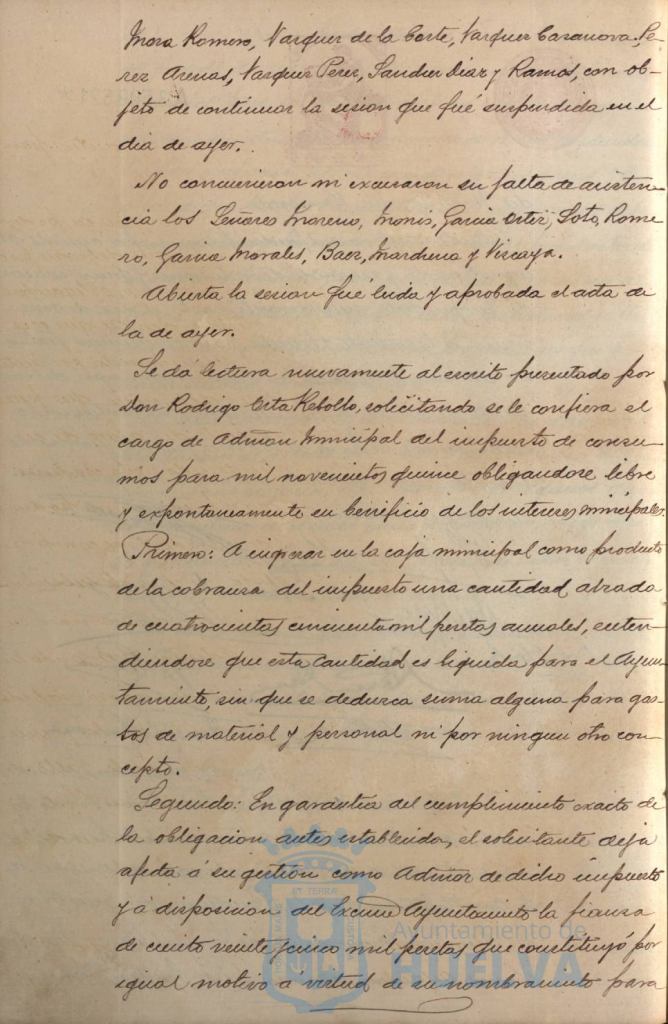 Mora Romero, Vazquez de la Corte, Vazquez Casanova, Pe-
rez Arenas, Vazquez Perez, Sanchez Diaz y Ramos, con ob-
jeto de continuar la sesion que fué suspendida en el
dia de ayer.
No concurrieron ni excusaron su falta de asisten-
cia los Señores Moreno, Monis, Garcia Ortiz, Soto, Rome-
ro, Garcia Morales, Baez, Marchena y Vizcaya.
Abierta la sesion fué leida y aprobada el acta de
la de ayer.
Se dá lectura nuevamente al escrito presentado por
Don Rodrigo Orta Rebollo, solicitando se le confiera el
cargo de Admon Municipal del impuesto de consu-
mos para mil novecientos quince obligandose libre
y expontaneamente en beneficio de los intereses municipales.
Primero: A ingresar en la caja municipal como producto
de la cobranza del impuesto una cantidad alzada
de cuatrocientas cincuenta mil pesetas anuales, enten-
diendose que esta cantidad es liquida para el Ayun-
tamiento, sin que se deduzca suma alguna para gas-
tos de material y personal ni por ningun otro con-
cepto.
Segundo: En garantia del cumplimiento exacto de
la obligacion antes establecida, el solicitante deja
afecta á su gestión como Admor de dicho impuesto
y á disposicion del Excmo Ayuntamiento la fianza
de ciento veinte y cinco mil pesetas que constituyó por
igual motivo á virtud de su nombramiento para
Ayuntamiento de
HUELVA